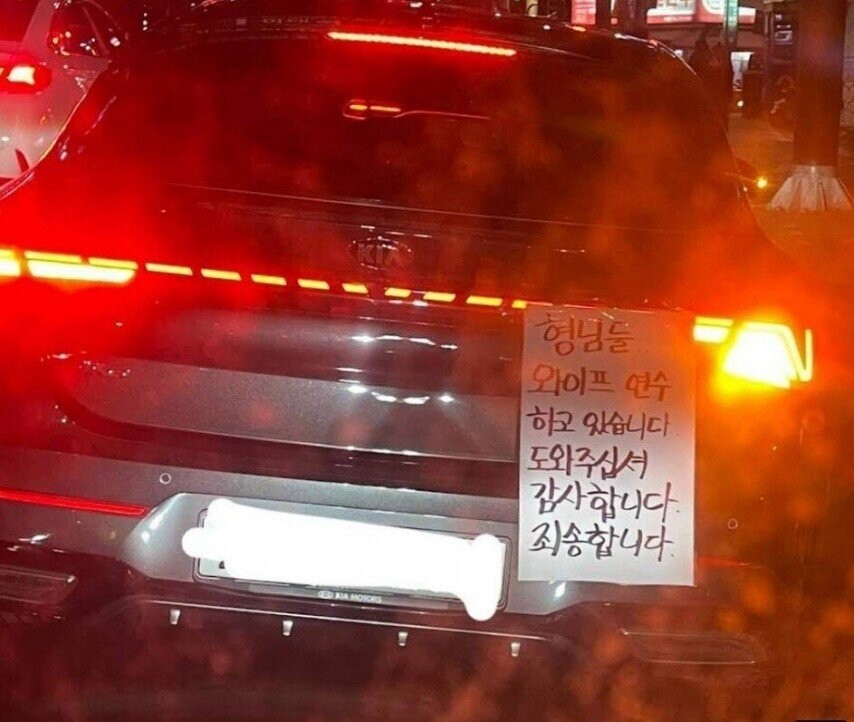 KIA
형님들
와이프 연수
하고 있습니다
도와주십셔
감사합니다.
죄송합니다.
KIA MOTORS